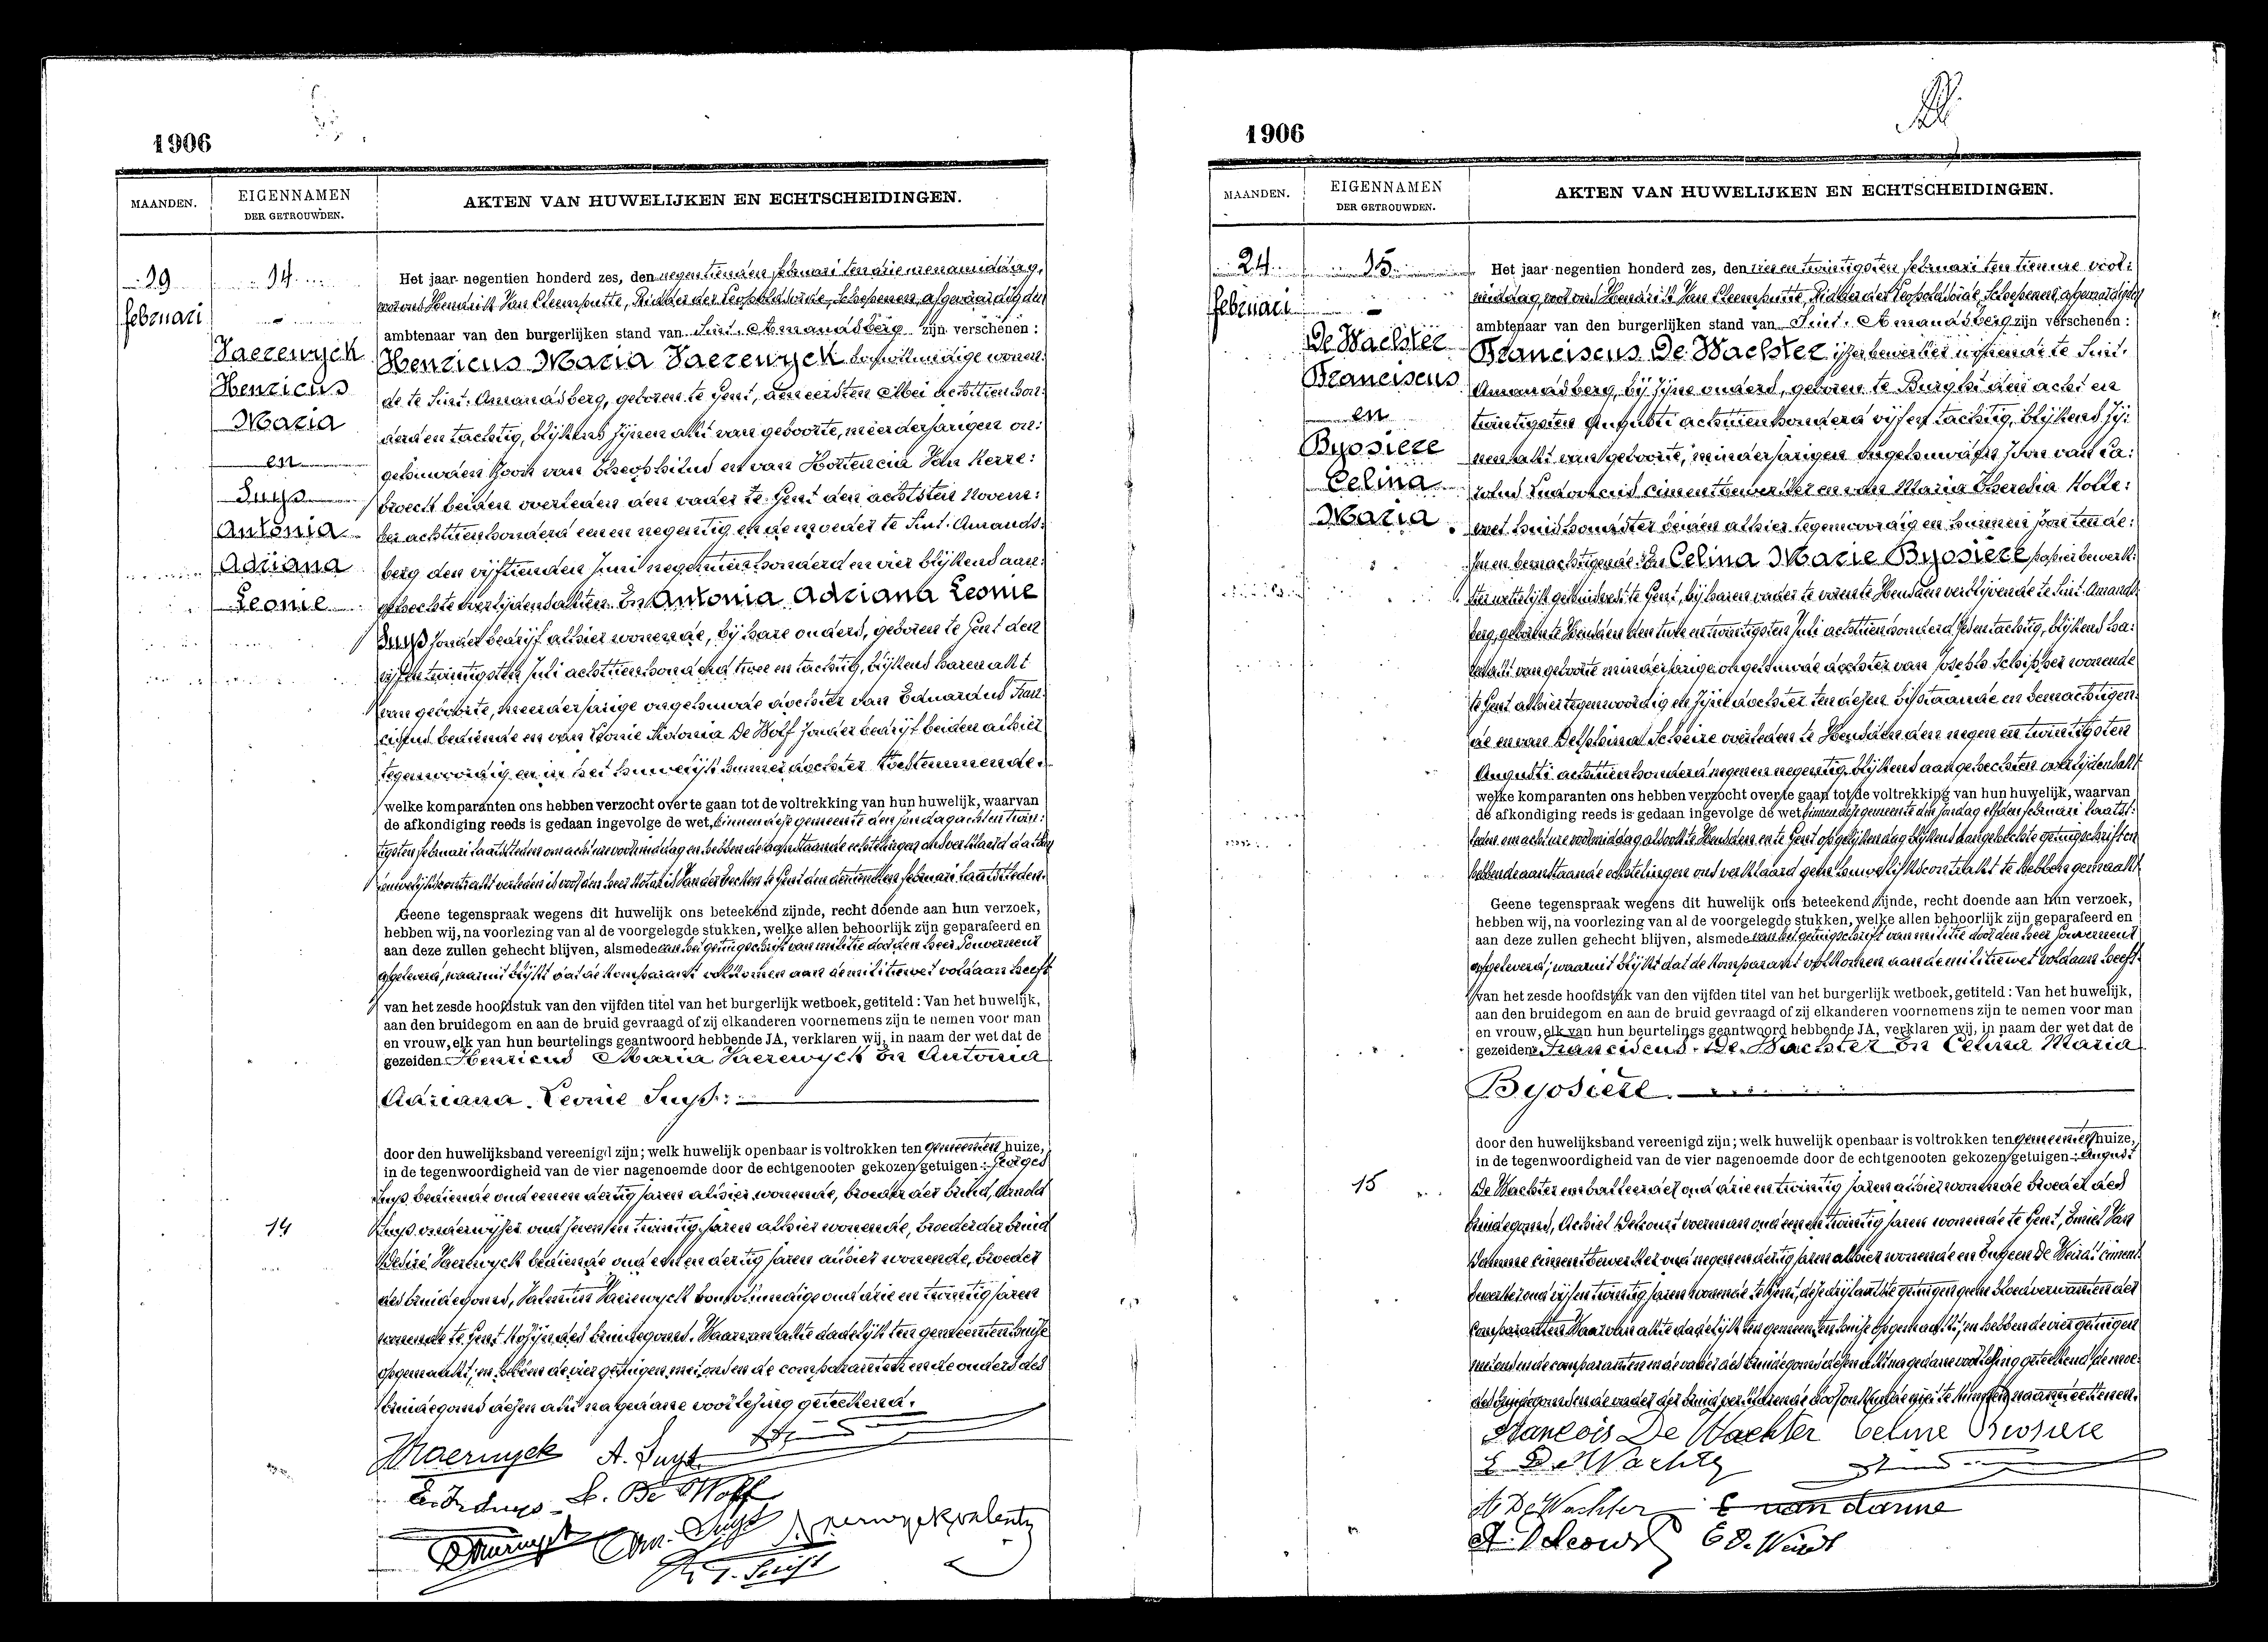 1906
MAANDEN.
EIGENNAMEN
DER GETROUWDEN.
AKTEN VAN HUWELIJKEN EN ECHTSCHEIDINGEN.
19
februari
14
Vaerewyck
Henricus
Maria
en
Suys
Antonia
Adriana
Leonie
Het jaar negentien honderd zes, den negentienden februari ten drie ure namiddag,
voor ons Hendrik Van Cleemputte, Ridder der Leopoldsorde, Schepenen, afgevaardigden
ambtenaar van den burgerlijken stand van Sint-Amandsberg zijn verschenen:
Henricus Maria Vaerewyck bouwkundige wonen:
de te Sint-Amandsberg, geboren te Gent, den eersten Mei achttien hon:
derd en tachtig, blijkens zijnen akt van geboorte, meerderjarigen on:
gehuwden zoon van Theophilus en van Hortencia Van Kerre:
broeck beiden overleden den vader te Gent den achtsten Novem:
ber achttienhonderd een en negentig en de moeder te Sint-Amands:
berg den vijftienden Juni negentienhonderd en vier blijkens aan:
gehechte overlijdensakten. En Antonia Adriana Leonie
Suys zonder bedrijf alhier wonende, bij hare ouders, geboren te Gent den
vijfentwintigsten Juli achttienhonderd twee en tachtig, blijkens haren akt
van geboorte, meerderjarige ongehuwde dochter van Eduardus Fran:
ciscus bediende en van Leonie Antonia De Wolf zonder bedrijf beiden alhier
tegenwoordig en in het huwelijk hunner dochter toestemmende.
welke komparanten ons hebben verzocht over te gaan tot de voltrekking van hun huwelijk, waarvan
de afkondiging reeds is gedaan ingevolge de wet, binnen deze gemeente den zondag
februari laatstleden om acht ure voormiddag en hebben de aanstaande echtelingen ons verklaard dat hun
huwelijkscontrakt verleden is voor den heer Notaris te Gent den februari laatstleden.
Geene tegenspraak wegens dit huwelijk ons beteekend zijnde, recht doende aan hun verzoek,
hebben wij, na voorlezing van al de voorgelegde stukken, welke allen behoorlijk zijn geparafeerd en
aan deze zullen gehecht blijven, alsmede van het getuigschrift van militie door den heer Gouverneur
afgeleverd, waaruit blijkt dat de komparant volkomen aan de militiewet voldaan heeft
van het zesde hoofdstuk van den vijfden titel van het burgerlijk wetboek, getiteld: Van het huwelijk,
aan den bruidegom en aan de bruid gevraagd of zij elkanderen voornemens zijn te nemen voor man
en vrouw, elk van hun beurtelings geantwoord hebbende JA, verklaren wij, in naam der wet dat de
gezeiden Henricus Maria Vaerewyck En Antonia
Adriana Leonie Suys.
door den huwelijksband vereenigd zijn; welk huwelijk openbaar is voltrokken ten gemeenten huize,
in de tegenwoordigheid van de vier nagenoemde door de echtgenooten gekozen getuigen: Georges
Suys bediende oud eenen dertig jaren alhier wonende, broeder der bruid, Arnold
Suys onderwijzer oud zeven en twintig jaren alhier wonende, broeder der bruid
Desiré Vaerewyck bediende oud een en dertig jaren alhier wonende, broeder
des bruidegoms, Valentin Vaerewyck bouwkundige oud drie en twintig jaren
wonende te Gent Kozijn des bruidegoms. Waarvan akte dadelijk ten gemeentenhuize
opgemaakt; en hebben de vier getuigen met ons en de comparanten en de ouders des
bruidegoms dezen akt na gedane voorlezing geteekend.
14
HVaerwyck A. Suys
L. De Wolf
1906
MAANDEN.
EIGENNAMEN
DER GETROUWDEN.
AKTEN VAN HUWELIJKEN EN ECHTSCHEIDINGEN.
24
februari
15
De Wachter
Franciscus
en
Byosiere
Celina
Maria
Het jaar negentien honderd zes, den vier en twintigsten februari ten tien ure voor:
middag, voor ons Hendrik Van Cleemputte, Ridder der Leopoldsorde, Schepenen, afgevaardigden
ambtenaar van den burgerlijken stand van Sint-Amandsberg zijn verschenen:
Franciscus De Wachter ijzerbewerker wonende te Sint-
Amandsberg, bij zijne ouders, geboren te Burght den acht en
twintigsten Augusti achttienhonderd vijf en tachtig, blijkens zij:
nen akt van geboorte, minderjarigen ongehuwden zoon van Ca:
rolus Ludovicus cimentbewerker en van Maria Theresia Kolle:
wet huishoudster beiden alhier tegenwoordig en hunnen zoon ten de:
zen en bemachtigende. En Celina Marie Byosiere papierbewerk:
ster wettelijk gehuisvest te Gent, bij haren vader te voren te Heusden verblijvende te Sint-Amands:
berg, geboren te Heusden den twee en twintigsten Juli achttienhonderd zes en tachtig, blijkens ha:
ren akt van geboorte minderjarige ongehuwde dochter van Joseph Schipper wonende
te Gent alhier tegenwoordig en zijne dochter ten dezen bijstaande en bemachtigen:
de en van Delphina Scheire overleden te Heusden den negen en twintigsten
Augusti achttienhonderd negen en negentig, blijkens aangehechten overlijdensakt
welke komparanten ons hebben verzocht over te gaan tot de voltrekking van hun huwelijk, waarvan
de afkondiging reeds is gedaan ingevolge de wet, binnen deze gemeente den zondag elfden februari laatst:
leden om acht ure voormiddag alsook te Heusden en te Gent op gelijken dag blijkens aangehechte getuigschriften
hebbende aanstaande echtelingen ons verklaard geen huwelijkscontrakt te hebben gemaakt
Geene tegenspraak wegens dit huwelijk ons beteekend zijnde, recht doende aan hun verzoek,
hebben wij, na voorlezing van al de voorgelegde stukken, welke allen behoorlijk zijn geparafeerd en
aan deze zullen gehecht blijven, alsmede van het getuigschrift van militie door den heer Gouverneur
afgeleverd; waaruit blijkt dat de komparant volkomen aan de militiewet voldaan heeft.
van het zesde hoofdstuk van den vijfden titel van het burgerlijk wetboek, getiteld: Van het huwelijk,
aan den bruidegom en aan de bruid gevraagd of zij elkanderen voornemens zijn te nemen voor man
en vrouw, elk van hun beurtelings geantwoord hebbende JA, verklaren wij, in naam der wet dat de
gezeiden Franciscus De Wachter En Celina Maria
Byosiere.
door den huwelijksband vereenigd zijn; welk huwelijk openbaar is voltrokken ten gemeentenhuize,
in de tegenwoordigheid van de vier nagenoemde door de echtgenooten gekozen getuigen: August
De Wachter emballeerder oud drie en twintig jaren alhier wonende broeder des
bruidegoms, Achiel Delcourt voerman oud een en twintig jaren wonende te Gent, Emiel Van
Damme cimentbewerker oud negen en dertig jaren alhier wonende en Eugeen De Weirdt ciment:
bewerker oud vijf en twintig jaren wonende te Gent, deze drij laatste getuigen geene bloedverwanten der
comparanten. Waarvan akte dadelijk ten gemeentenhuize opgemaakt; en hebben de vier getuigen
met ons en de comparanten en de vader des bruidegoms dezen akt na gedane voorlezing geteekend de moe:
der des bruidegoms en de vader der bruid verklarende door onkunde niet te kunnen naamteekenen.
15
François De Wachter Celine Biosiere
De Wachter
A De Wachter E van damme
A. Delcourt E De Weirdt